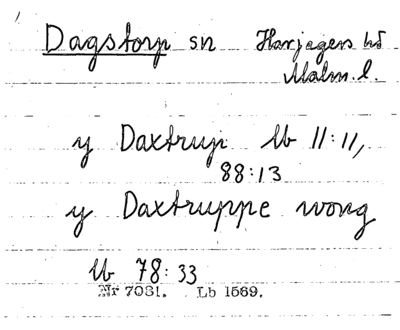 Dagstorp sn Harjagers hd
Malm. l.
y Daxtrup Lb 11:11,
88:13
y Daxtruppe wong
Lb 78:33
Nr 7031. Lb 1569.